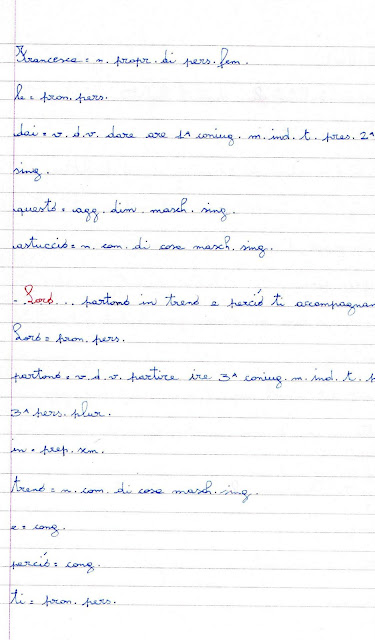 Francesca = n. propr. di pers. fem.
le = pron. pers.
dai = v. d. v. dare are 1ª coniug. m. ind. t. pres. 2ª
sing.
questo = agg. dim. masch. sing.
astuccio = n. com. di cosa masch. sing.
- Loro... partono in treno e perciò ti accompagnan
Loro = pron. pers.
partono = v. d. v. partire ire 3ª coniug. m. ind. t. p
3ª pers. plur.
in = prep. sem.
treno = n. com. di cosa masch. sing.
e = cong.
perciò = cong.
ti = pron. pers.